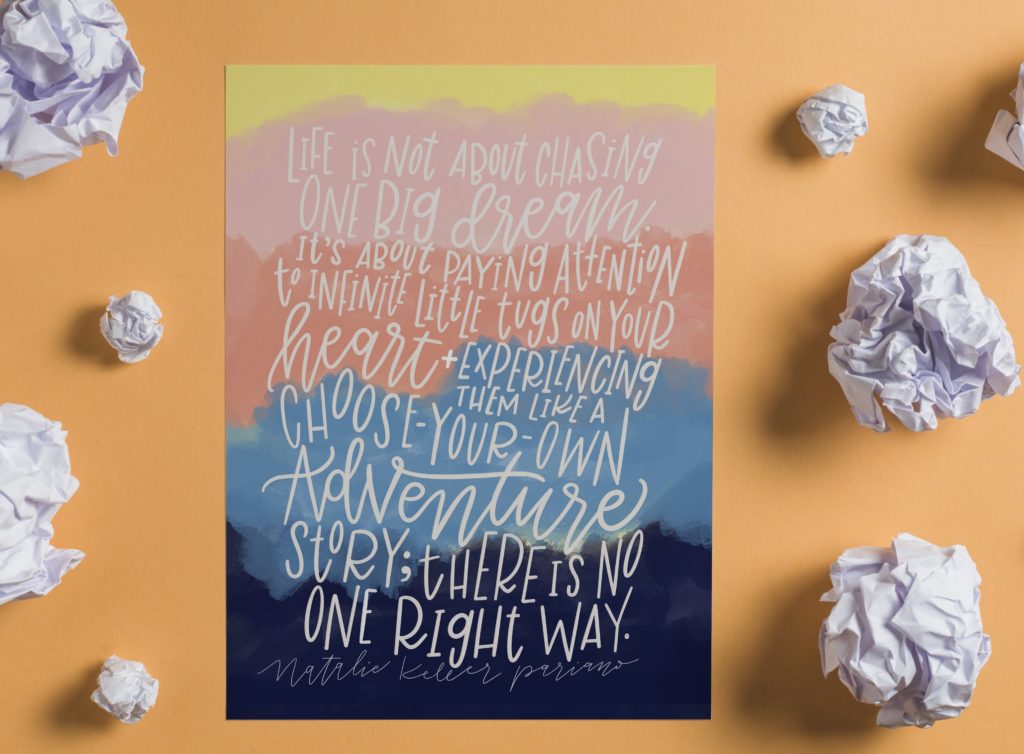 LIFE IS NOT ABOUT CHASING
ONE BIG dream.
IT'S ABOUT PAYING ATTENTION
to INFINITE LITTLE TUGS ON YOUR
heart + EXPERIENCING
THEM LIKE A
CHOOSE-YOUR-OWN
Adventure
STORY; tHERE IS NO
ONE RIGHT WAY.
Natalie Keller Pariano